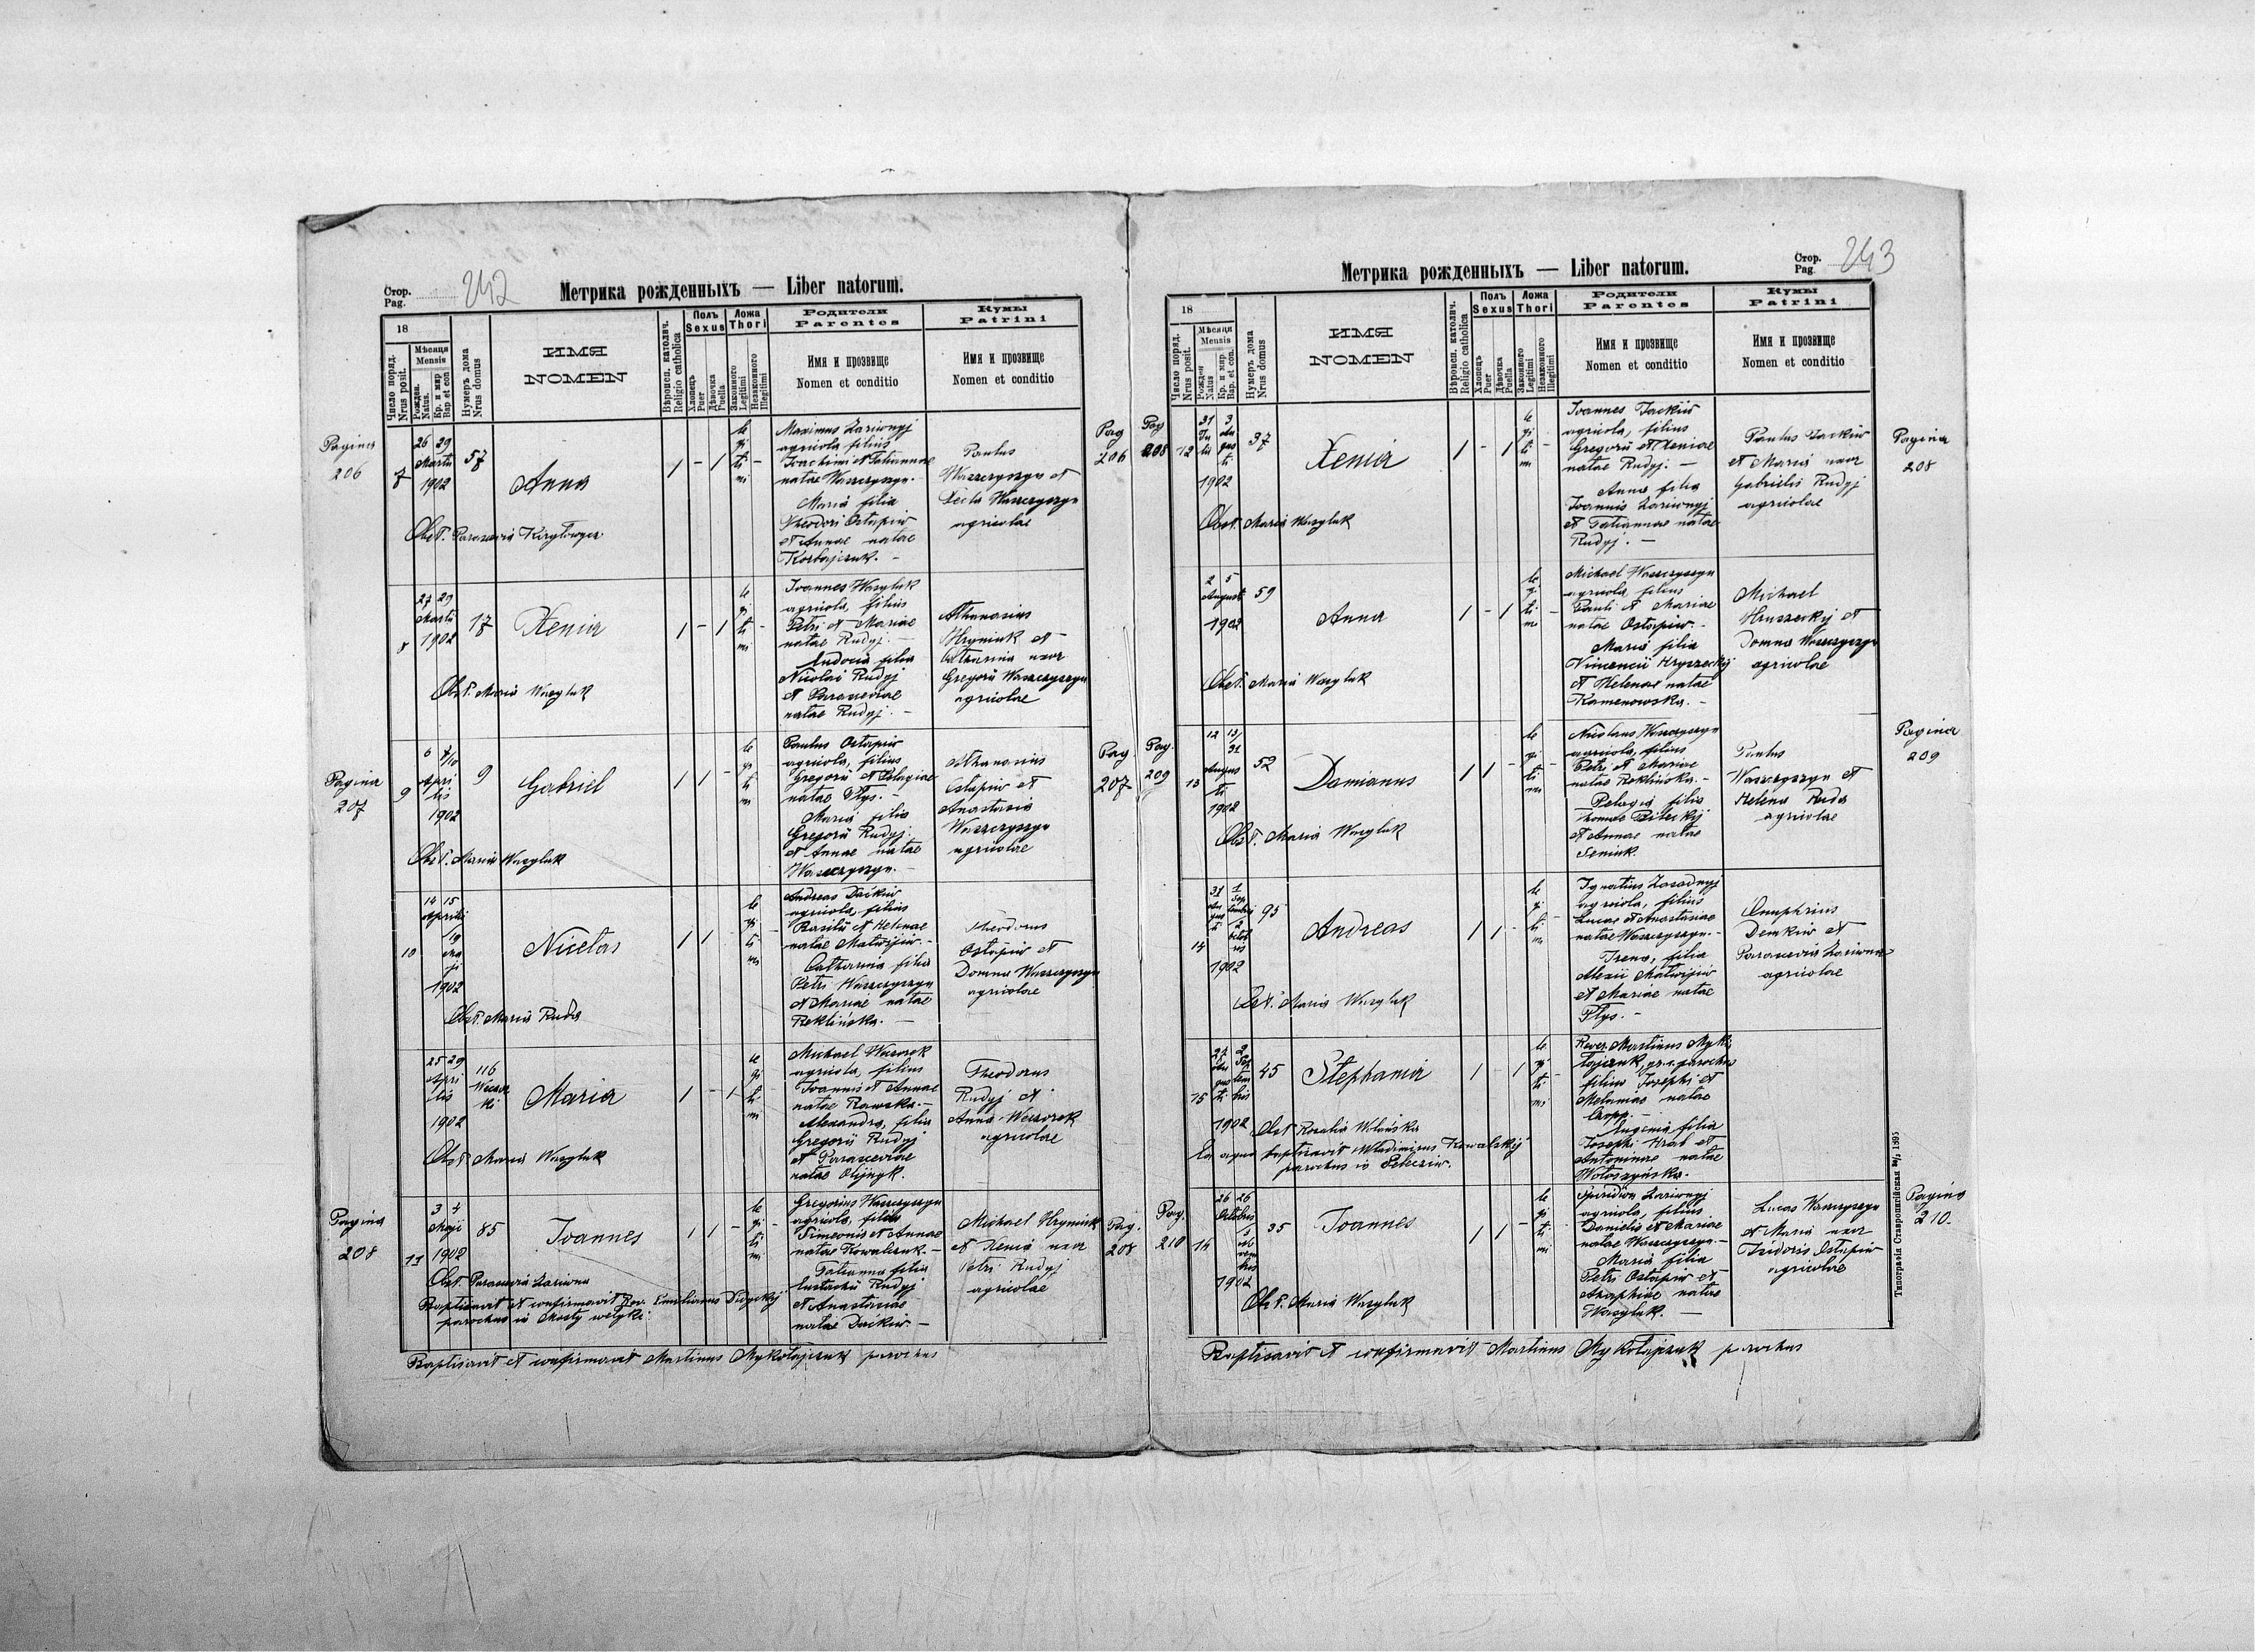 Стор.
Pag. 242
Метрика рожденныхъ — Liber natorum.
18
Число поряд.
Nrus posit.
Мѣсяця
Mensis
Рожден.
Natus.
Кр. и мир
Bap. et con
Нумеръ дома
Nrus domus
ИМЯ
NOMEN
Вѣроисп. католич.
Religio catholica
Полъ
Sexus
Хлопець
Puer
Дѣвочка
Puella
Ложа
Thori
Законного
Legitimi
Незаконного
Illegitimi
Родители
Parentes
Имя и прозвище
Nomen et conditio
Кумы
Patrini
Имя и прозвище
Nomen et conditio
Pagina
206
7
26 29
Martii
1902
57
Anna
1 - 1
le
gi
ti
mi
-
Maximus Lariwnyj
agricola filius
Joachimi et Tatiannae
natae Waszczyszyn.
Maria filia
Theodori Ostapiw
et Annae natae
Korbajczuk. -
Paulus
Waszczyszyn et
Tecla Waszczyszyn
agricolae
Pag
206
Obst. Parascevia
8
27 29
Martii
1902
17
Xenia
1 - 1
le
gi
ti
mi
-
Joannes Wasyluk
agricola, filius
Petri et Mariae
natae Rudyj. -
Eudocia filia
Nicolai Rudyj
et Parasceviae
natae Rudyj. -
Athanasius
Hryniuk et
Catharina uxor
Gregorii Waszczyszyn
agricolae
Obst. Maria Wasyluk
Pagina
207
9
6 7/10
Apri
lis
1902
9
Gabriel
1 1 -
le
gi
ti
mi
Paulus Ostapiw
agricola, filius
Gregorii et Pelagiae
natae Płys. -
Maria filia
Gregorii Rudyj
et Annae natae
Waszczyszyn. -
Athanasius
Ostapiw et
Anastasia
Waszczyszyn
agricolae
Pag
207
Obst. Maria Wasyluk
10
14 15
Aprilis
19
ma
ji
1902
Nicetas
1 1
-
le
gi
ti
mi
Andreas Daćkiw
agricola, filius
Basilii et Helenae
natae Matwijiw. -
Catharina filia
Petri Waszczyszyn
et Mariae natae
Reklińska. -
Theodorus
Ostapiw et
Domna Waszczyszyn
agricolae
Obst. Maria Ruda
25 29
Apri
lis
1902
116
Maria
1 - 1
le
gi
ti
mi
Michael Weczorek
agricola, filius
Joannis et Annae
natae Rawska. -
Alexandra, filia
Gregorii Rudyj
et Parasceviae
natae Olijnyk.
Theodorus
Rudyj et
Anna Weczorek
agricolae
Obst. Maria Wasyluk
Pagina
208
11
3 4
Maji
1902
85
Joannes
1 1 -
le
gi
ti
mi
Gregorius Waszczyszyn
agricola, filius
Simeonis et Annae
natae Kowalczuk. -
Tatianna filia
Eustachii Rudyj
et Anastasiae
natae Daćkiw. -
Michael Hryniuk
et Xenia uxor
Petri Rudyj
agricolae
Pag.
208
Obst. Parascevia Lariwna
Baptisavit et confirmavit Rev. Emilianus Didyckij
parochus in Mosty welyki
Baptisavit et confirmavit Martinus Mykołajczuk parochus
Стор.
Pag. 243
Метрика рожденныхъ — Liber natorum.
18
Число поряд.
Nrus posit.
Мѣсяця
Mensis
Рожден
Natus
Кр. и мир
Bap. et con.
Нумеръ дома
Nrus domus
ИМЯ
NOMEN
Вѣроисп. католич.
Religio catholica
Полъ
Sexus
Хлопець
Puer
Дѣвочка
Puella
Ложа
Thori
Законного
Legitimi
Незаконного
Illegitimi
Родители
Parentes
Имя и прозвище
Nomen et conditio
Кумы
Patrini
Имя и прозвище
Nomen et conditio
Pag
208
12
31 3
Ju
lii
Au
gus
ti
1902
37
Xenia
1 - 1
le
gi
ti
mi
-
Joannes Jackiw
agricola, filius
Gregorii et Xeniae
natae Rudyj. -
Anna filia
Joannis Lariwnyj
et Tatiannae natae
Rudyj. -
Paulus Jackiw
et Maria uxor
Gabrielis Rudyj
agricolae
Pagina
208
Obst. Maria Wasyluk
2 5
Augusti
1902
59
Anna
1 - 1
le
gi
ti
mi
-
Michael Waszczyszyn
agricola filius
Pauli et Mariae
natae Ostapiw. -
Maria filia
Vincencii Hryszeckij
et Helenae natae
Kamenowska. -
Michael
Hruszeckij et
Domna Waszczyszyn
agricolae
Obst. Maria Wasyluk
Pag.
209
13
12 13/31
Augus
ti
1902
52
Damianus
1 1 -
le
gi
ti
mi
-
Nicolaus Waszczyszyn
agricola, filius
Petri et Mariae
natae Reklińska. -
Pelagia filia
Thomae Bileckij
et Annae natae
Seniuk.
Paulus
Waszczyszyn et
Helena Ruda
agricolae
Pagina
209
Obst. Maria Wasyluk
14
31 1
Au
gus
ti
Sep
tembris
2
octob
ris
1902
95
Andreas
1 1 -
le
gi
ti
mi
-
Ignatius Zasadnyj
agricola, filius
Lucae et Anastasiae
natae Waszczyszyn. -
Irena, filia
Alexii Matwijiw
et Mariae natae
Płys. -
Onuphrius
Demkiw et
Parascevia Lariwna
agricolae
Obst. Maria Wasyluk
15
27 2
Au
gus
ti
Sep
tem
bris
1902
45
Stephania
1 - 1
le
gi
ti
mi
Rever. Martinus Myko
łajczuk, gr. c. parochus
filius Josephi et
Melaniae natae
Eugenia filia
Josephi Hrab et
Antoninae natae
Wołoszyńska.
Obst Rosalia Wilańska
Ex aqua baptisavit Wladimirus Kowalskij
parochus in Sełecziw.
Pag.
210
26 26
Octobris
1902
35
Joannes
1 1 -
le
gi
ti
mi
-
Spiridion Lariwnyj
agricola, filius
Danielis et Mariae
natae Waszczyszyn. -
Maria filia
Petri Ostapiw et
Agaphiae natae
Wasyluk. -
Lucas Waszczyszyn
et Maria uxor
Isidoris Ostapiw
agricolae
Pagina
210.
Obst. Maria Wasyluk
Baptisavit et confirmavit Martinus Mykołajczuk parochus